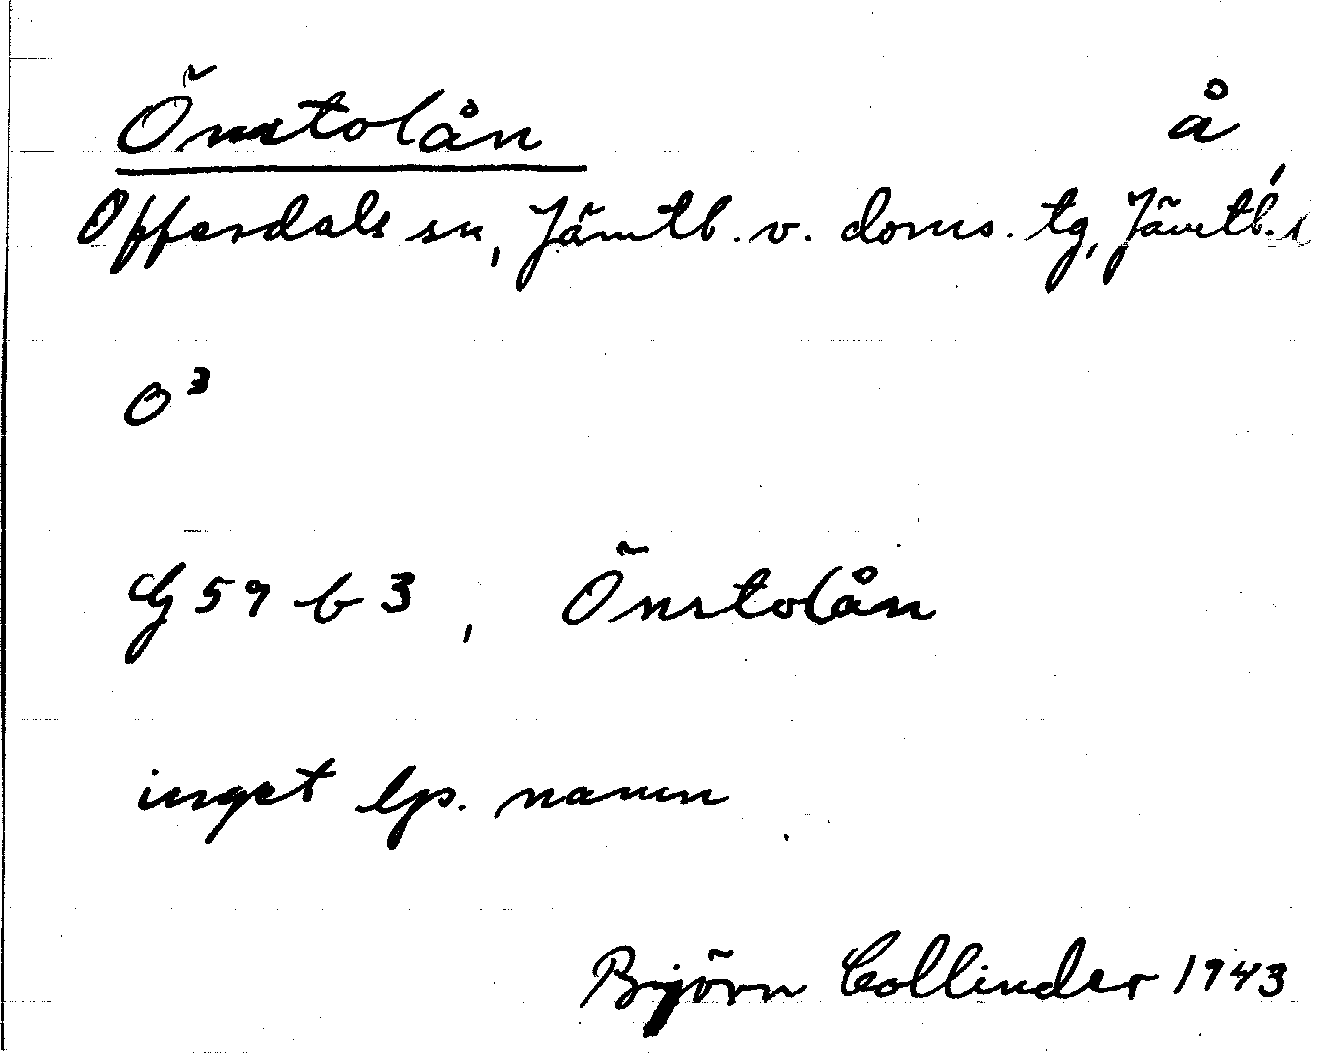 Önstolån å
Offerdals sn, Jämtl. v. doms. tg, Jämtl. l
O³
G 59 b 3, Önstolån
inget lp. namn
Björn Collinder 1943